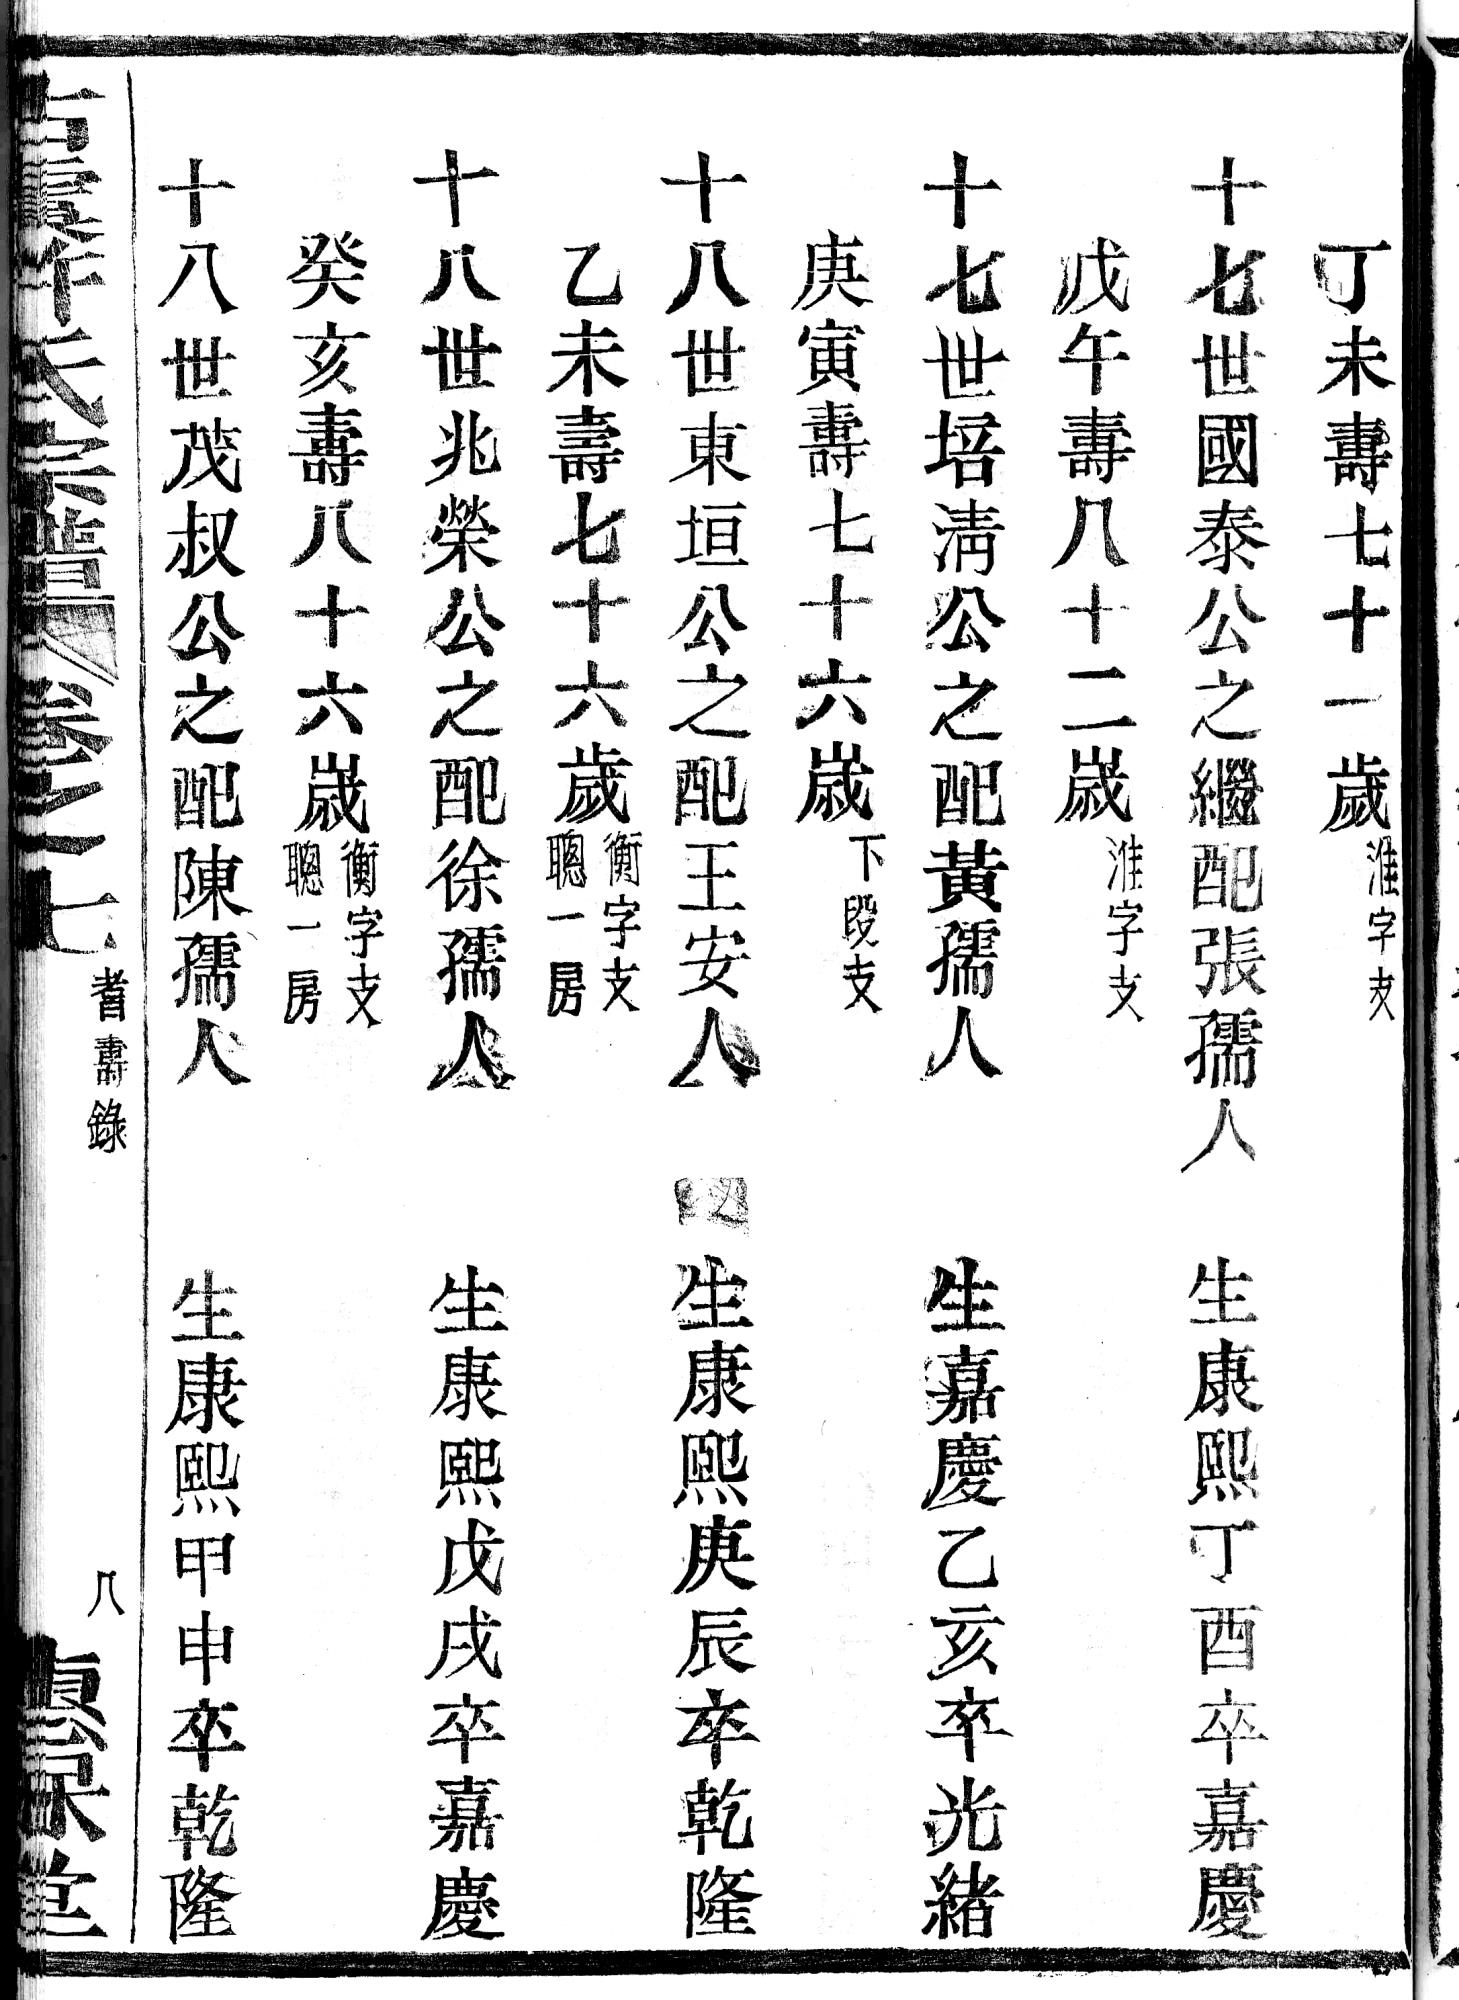 丁未壽七十一歲淮字支
十七世國泰公之繼配張孺人 生康熙丁酉卒嘉慶
戊午壽八十二歲淮字支
十七世培淸公之配黃孺人 生嘉慶乙亥卒光緒
庚寅壽七十六歲下段支
十八世東垣公之配王安人 生康熙庚辰卒乾隆
乙未壽七十六歲衡字支
聰一房
十八世兆榮公之配徐孺人 生康熙戊戌卒嘉慶
癸亥壽八十六歲衡字支
聰一房
十八世茂叔公之配陳孺人 生康熙甲申卒乾隆
氏宗譜 卷之七 耆壽錄 八 惠保堂